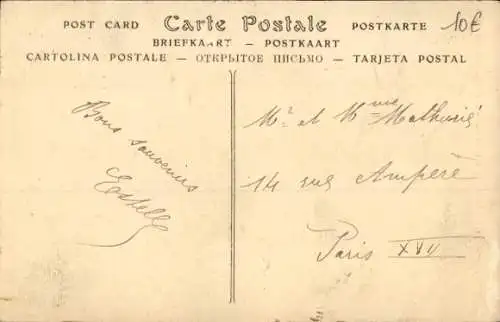 POST CARD Carte Postale POSTKARTE 10€
BRIEFKAART — POSTKAART
CARTOLINA POSTALE — ОТКРЫТОЕ ПИСЬМО — TARJETA POSTAL
Bons souvenirs
Estelle
Mr et Mme Mathurié
14 rue Ampère
Paris XVII